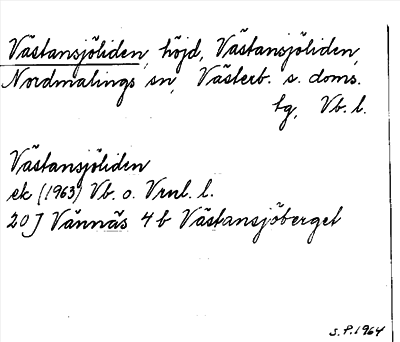 Västansjöliden, höjd, Västansjöliden,
Nordmalings sn, Västerb. s. doms.
tg, Vb. l.
Västansjöliden
ek (1963) Vb. o. Vrnl. l.
20 J Vännäs 4 b Västansjöberget
S.P. 1964